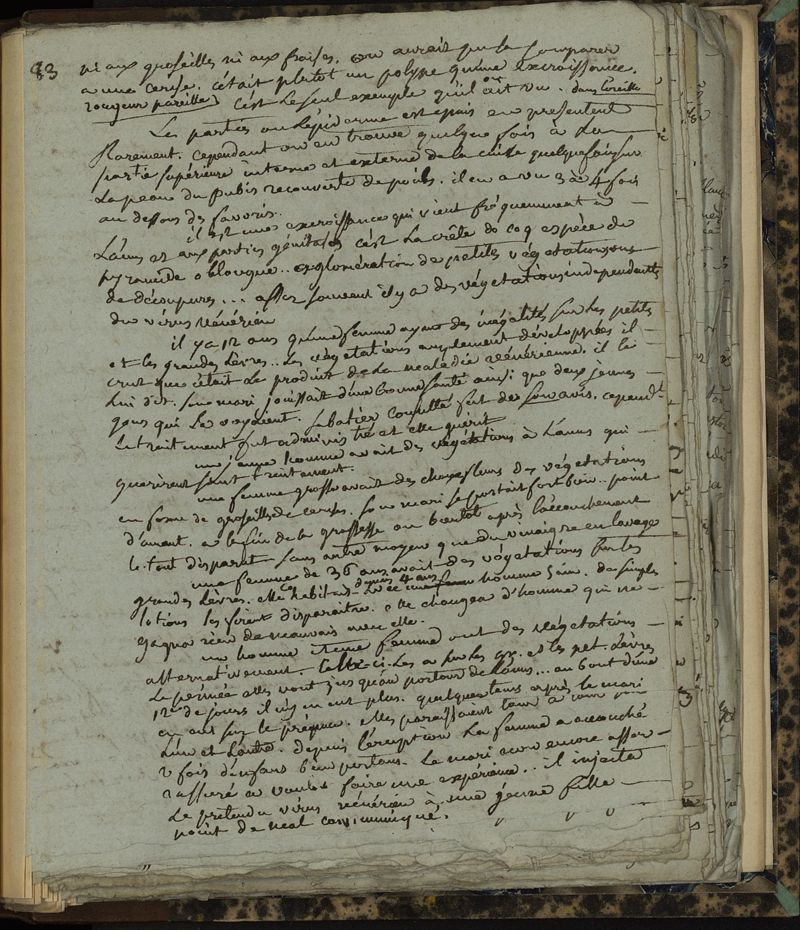 83 ni aux groseilles ni aux fraises. on aurait pu le comparer
a une cerise. c'était plutot un polype qu'une excroissance.
rougeur pareille c'est le seul exemple qu'il ait vu. dans l'oreille
Les parties où l'épiderme est epais en presentent
Rarement. cependant on en trouve quelque fois à la
partie supérieure interne et externe de la cuisse quelquefois sur
la peau du pubis recouverte de poils. il en a vu 3 à 4 fois
au dessous des favoris.
il est une excroissance qui vient fréquemment à
l'anus et aux parties génitales c'est la crête de coq espèce de
pyramide oblongue.. agglomération de petites végétations
de découpures... assez souvent il y a des végétations independantes
du virus vénérien
il y a 12 ans qu'une femme ayant des inégalités sur les petites
et les grandes lèvres.. les végétations amplement développées il
crut que c'était le produit de la maladie vénérienne. il le
lui dit. son mari jouissait d'une bonne santé ainsi que deux jeunes
gens qui la voyaient. Sabatier consulté fut de son avis. cependt
le traitement fut administré et elle guérit
un jeune homme avait des végétations à l'anus qui
guérirent sans traitement.
une femme grosse avait des choux fleurs des végétations
en forme de groseilles de cerises. son mari se portait fort bien.. point
d'amant. a la fin de la grossesse ou bientôt après l'accouchement
le tout disparut sans autre moyen que du vinaigre en lavage
une femme de 36 ans avait des végétations sur les
grandes lèvres. elle habitait depuis 4 ans avec un homme sain. de simples
lotions les firent disparaitre. elle changea d'homme qui ne
gagna rien de mauvais avec elle.
un homme et une femme ont des végétations
alternativement. Celle-ci les a sur les gr. et les pet. lèvres
le perinée elles vont jusqu'au pourtour de l'anus... au bout d'une
12ne de jours il n'y en eut plus. quelque tems après le mari
en eut sur le prépuce. elles paraissaient tour à tour
l'un et l'autre. depuis l'eruption la femme a accouché
2 fois d'enfans bien portans. le mari
rassuré a voulu faire une expérience.. il injecta
le prétendu virus vénérien à une jeune fille
point de mal communiqué.